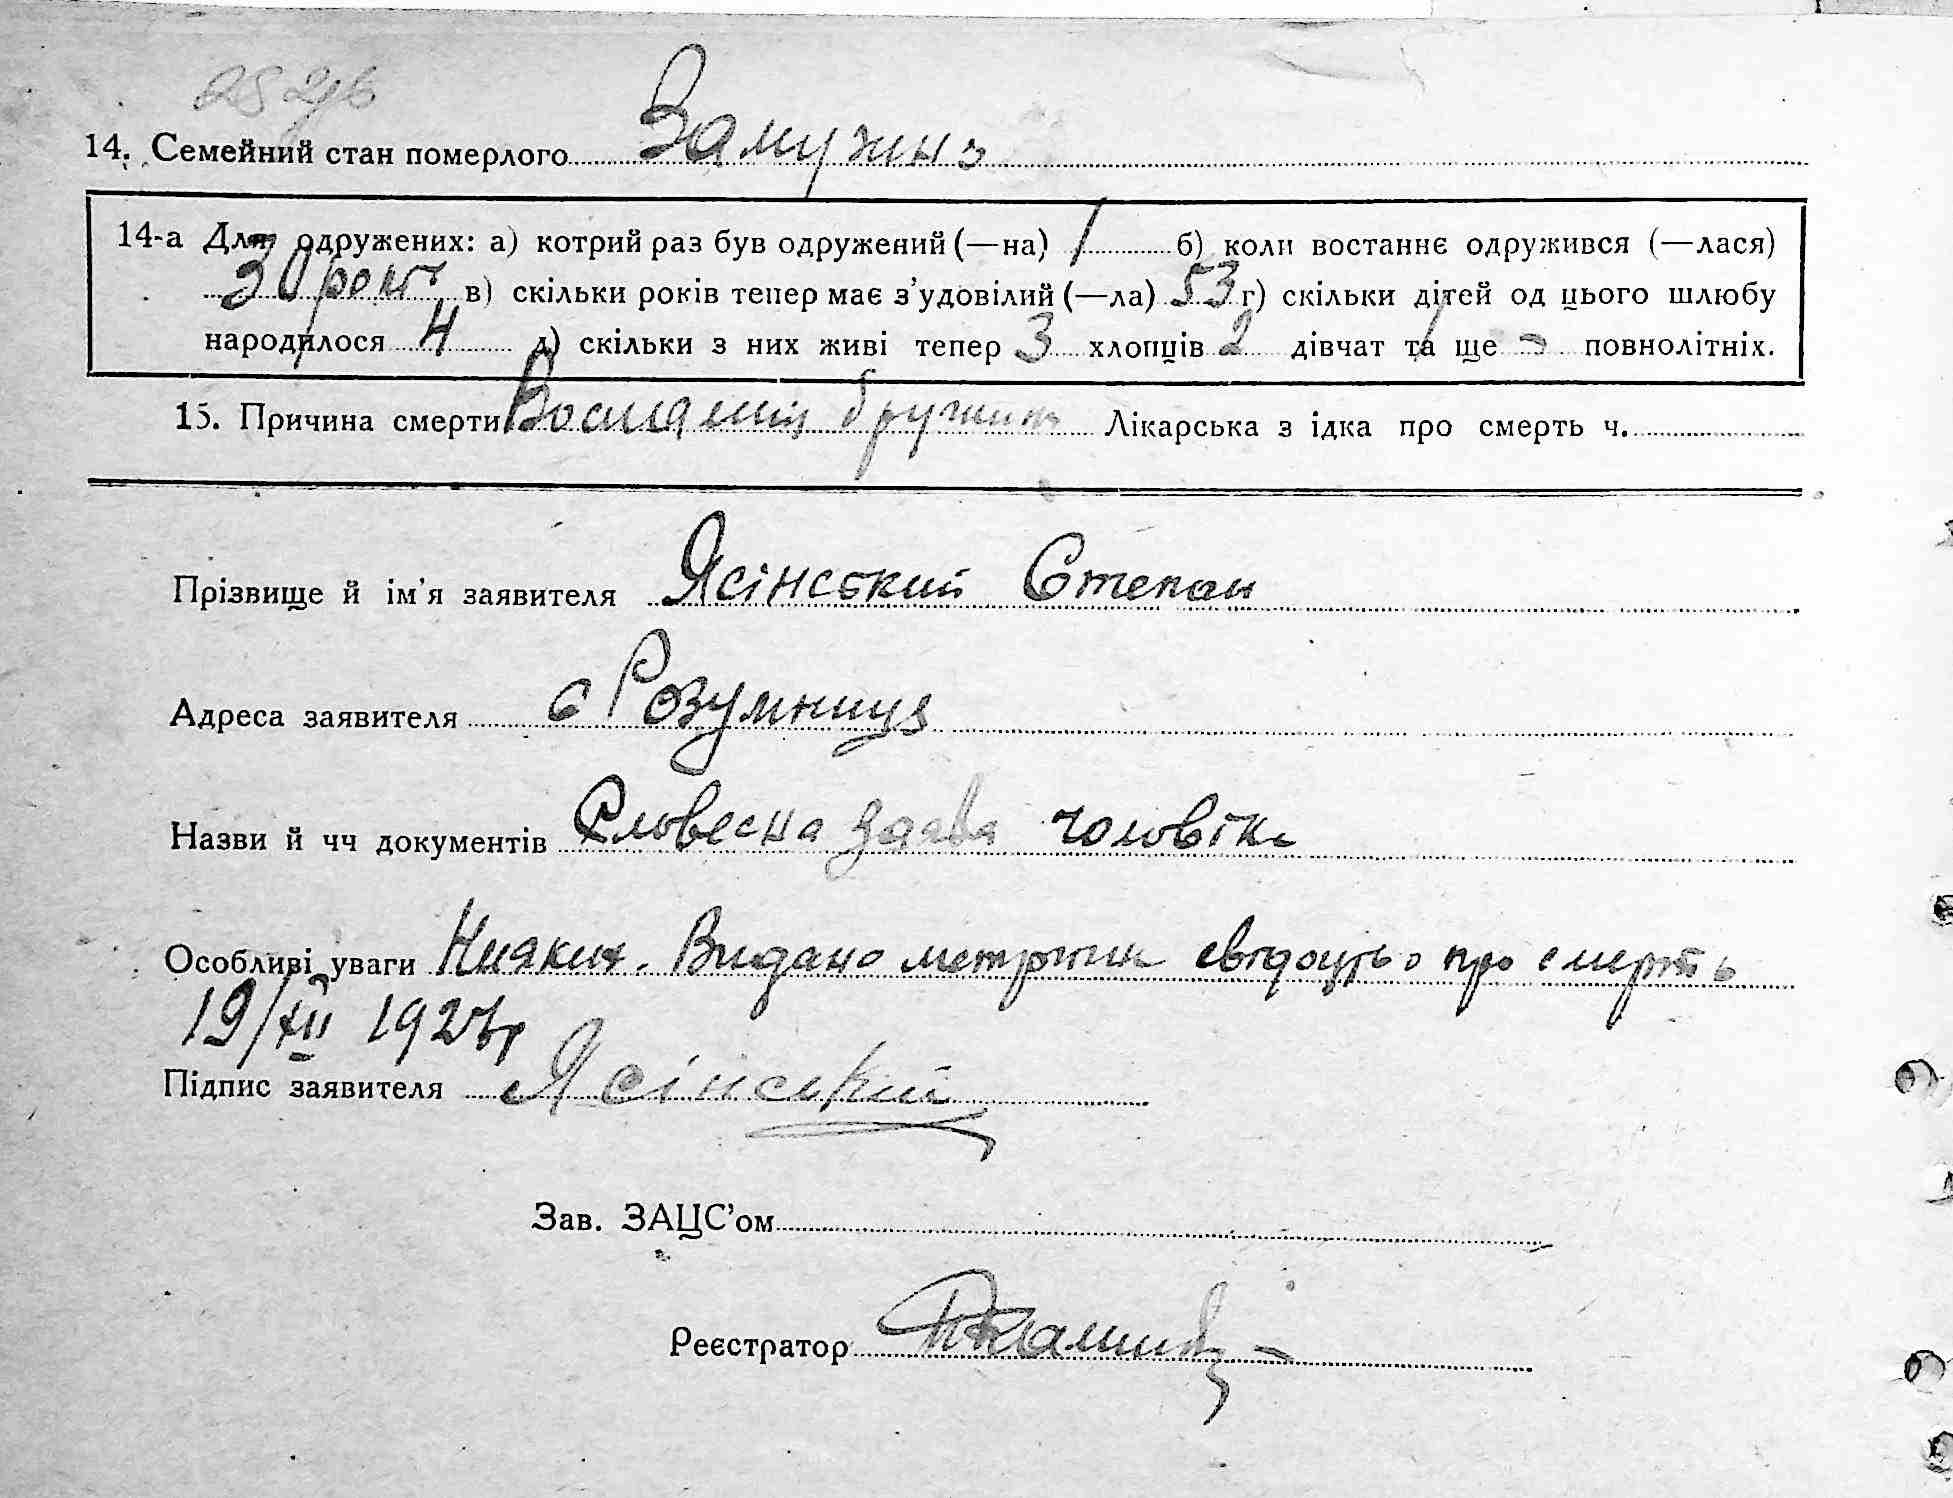 14. Семейний стан померлого Замужня
14-а Для одружених: а) котрий раз був одружений (—на) 1 б) коли востаннє одружився (—лася)
30 років в) скільки років тепер має з’удовілий (—ла) 53 г) скільки дітей од цього шлюбу
народилося 4 д) скільки з них живі тепер 3 хлопців 2 дівчат 1 та ще - повнолітніх.
15. Причина смерти Лікарська з ідка про смерть ч.
Прізвище й ім’я заявителя Ясінський Степан
Адреса заявителя с Розумниця
Назви й чч документів Словесна заява чоловіка
Особливі уваги Ніяких. Видано метричне свідоцтво про смерть
19/XII 192
Підпис заявителя Ясінський
Зав. ЗАЦС’ом
Реєстратор